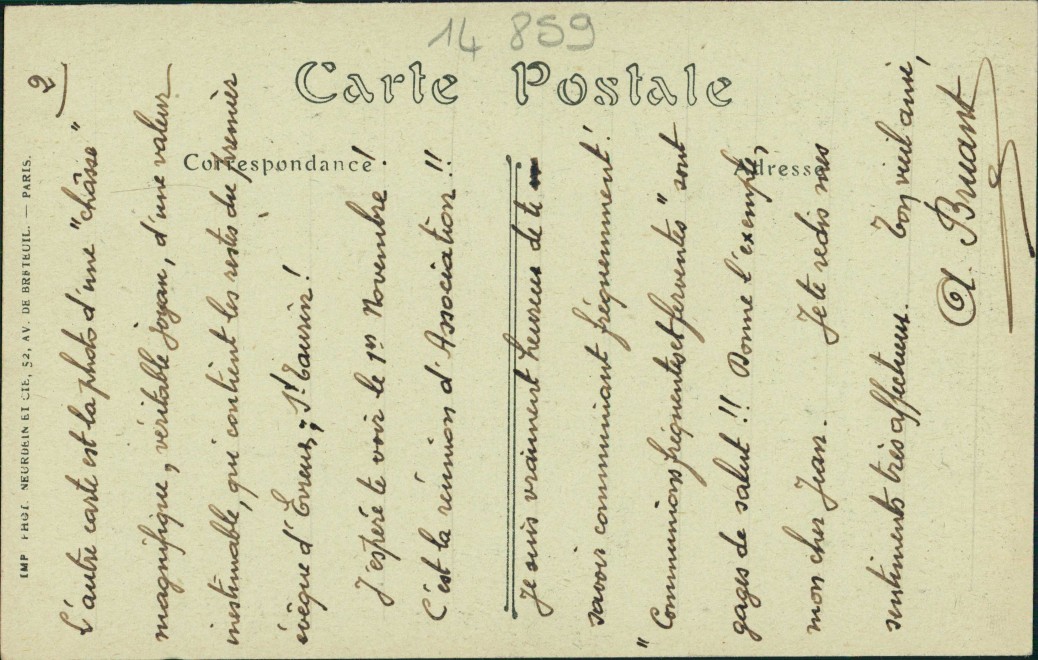 14 859
Carte Postale
Correspondance
Adresse
IMP. PHOT. NEURDEIN ET CIE, 52, AV. DE BRETEUIL. — PARIS.
2)
L'autre carte est la photo d'une "châsse"
magnifique, véritable joyau, d'une valeur
inestimable, qui contient les restes du premier
évêque d'Evreux, St Taurin!
J'espère te voir le 1er Novembre!
C'est la réunion d'Association!!
Je suis vraiment heureux de te
savoir communiant fréquemment!
"Communions fréquentes et ferventes" sont
gages de salut!! Donne l'exemple,
mon cher Jean. Je te redis mes
sentiments très affectueux. Ton vieil ami,
A. Bruant